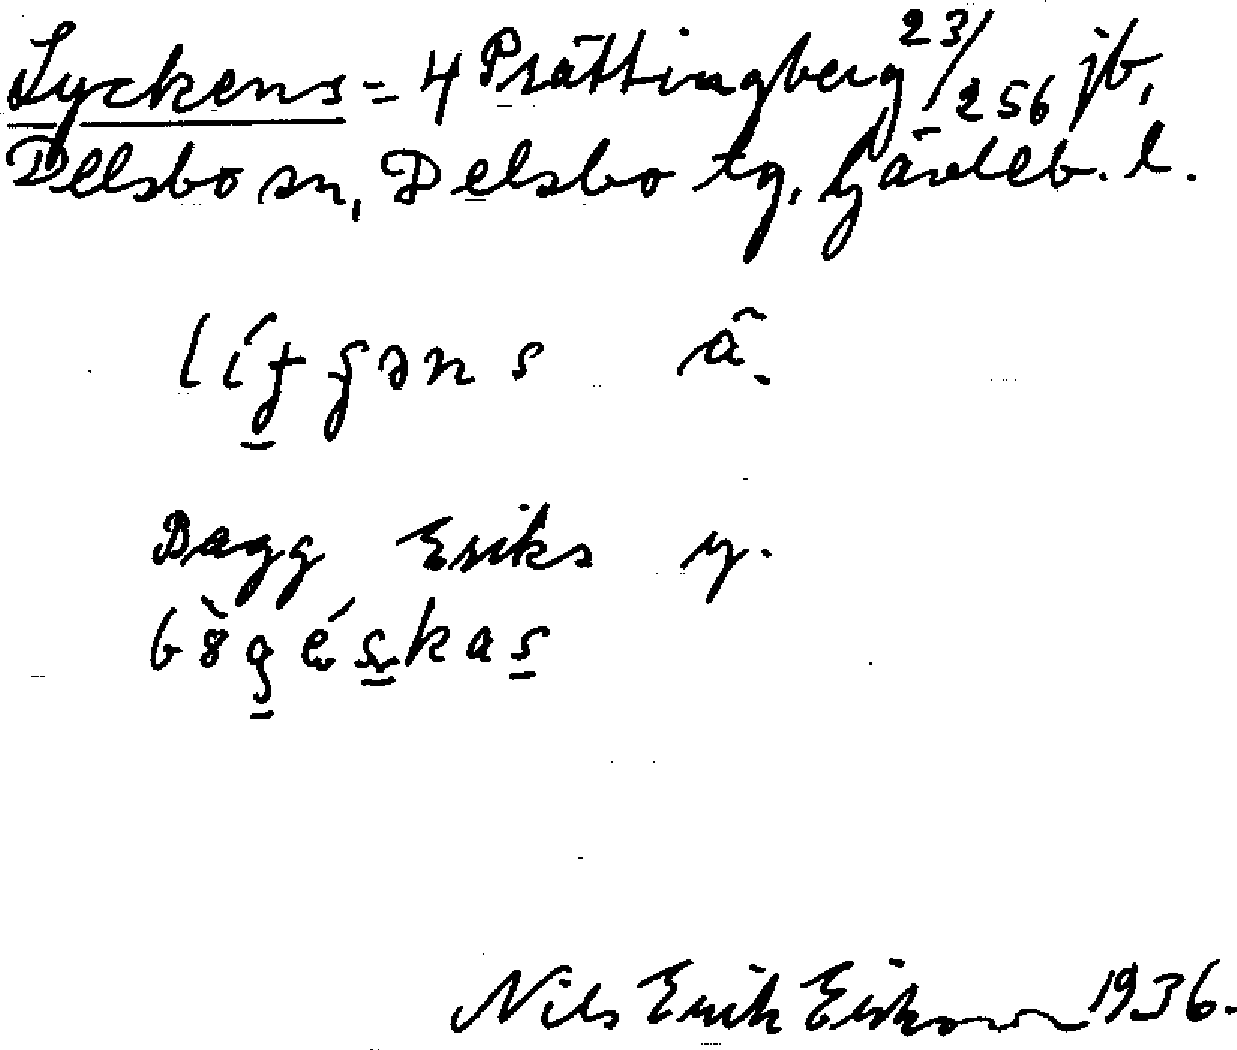 Lyckens = 4 Prättingberg 23/256 jb,
Delsbo sn, Delsbo tg, Gävleb. l.
ä.
Bagg Eriks y.
Nils Erik Eriksson 1936.